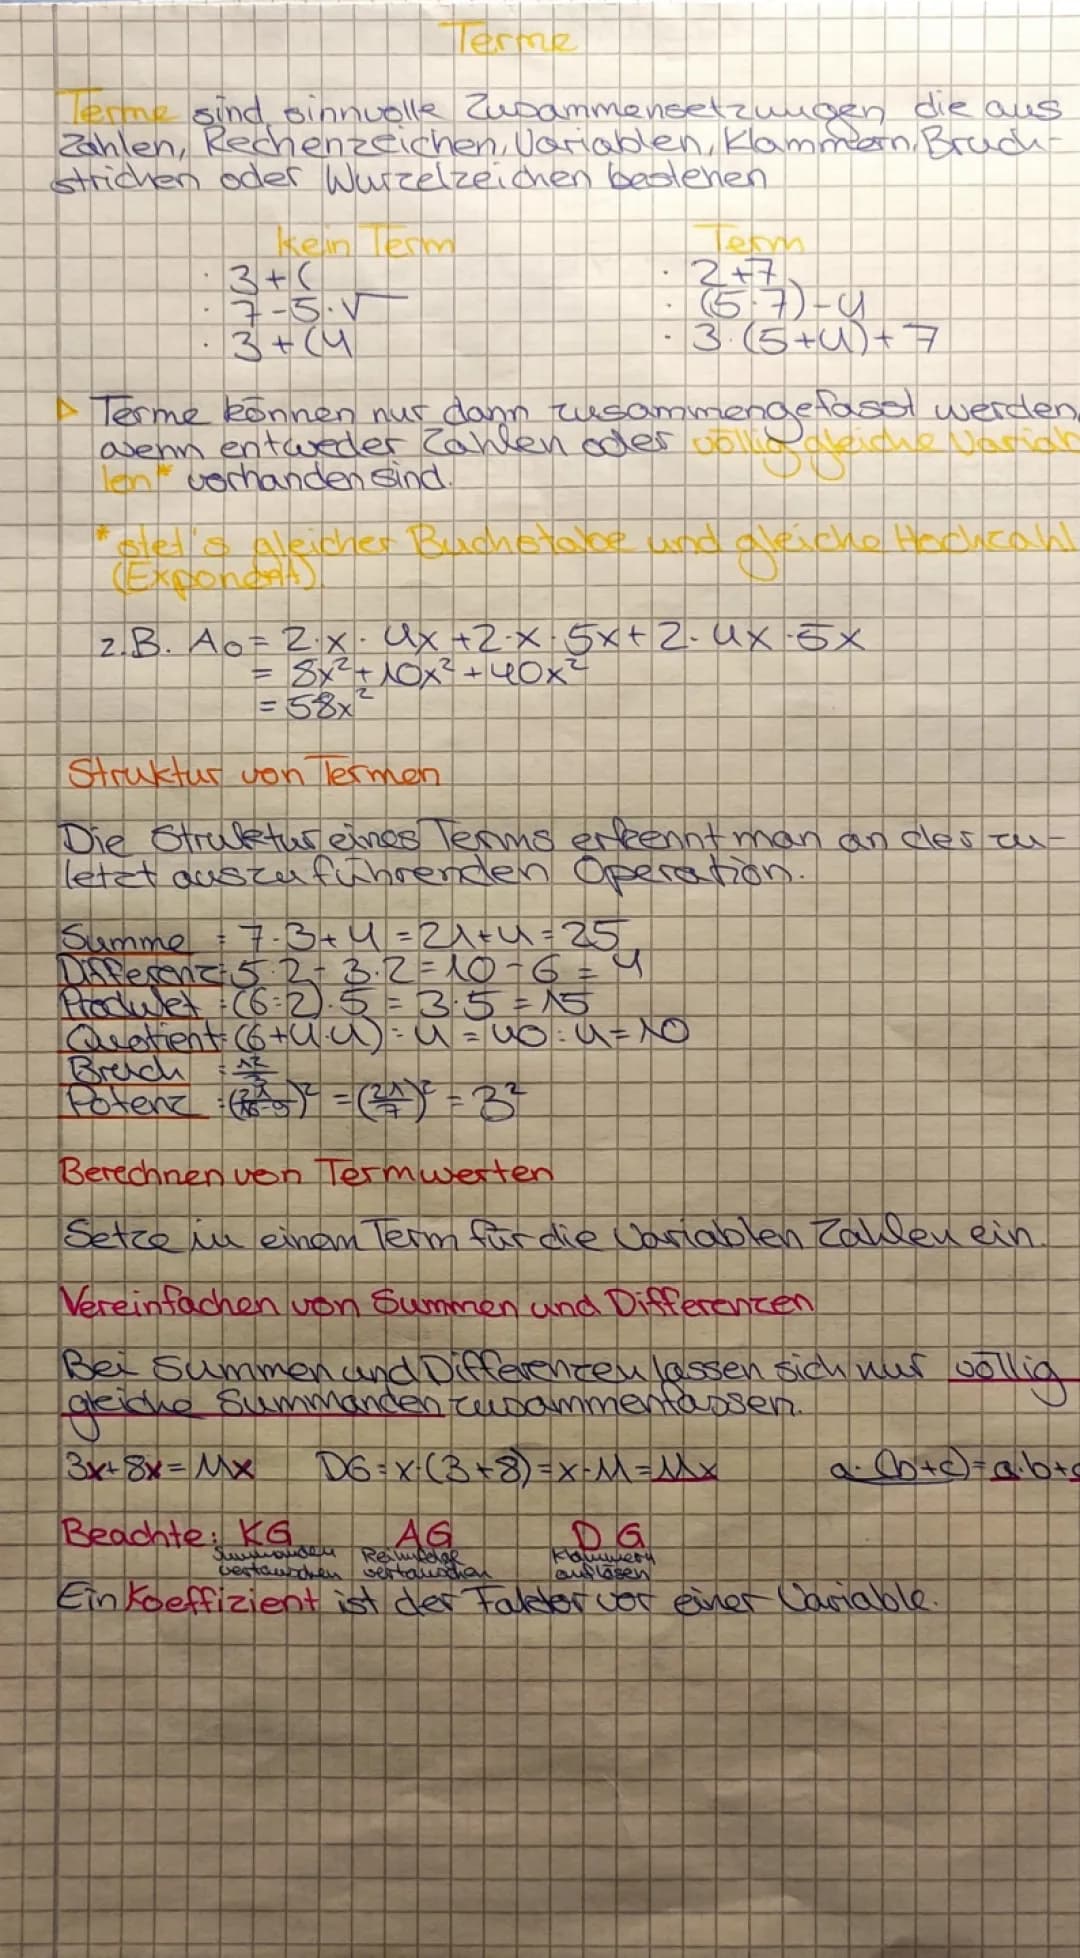 Terme
Terme sind sinnvolle Zusammensetzungen, die aus
Zahlen, Rechenzeichen, Variablen, Klammern, Bruch-
strichen oder Wurzelzeichen bestehen
kein Term
· 3+(
· 7-5·√
· 3+(4
Term
· 2+7
· (5·7)-4
· 3·(5+4)+7
▷ Terme können nur dann zusammengefasst werden,
wenn entweder Zahlen oder völlig gleiche Variab
len* vorhanden sind.
*stet's gleicher Buchstabe und gleiche Hochzahl
(Exponent).
z.B. Ao = 2·x·4x+2·x·5x+2·4x·5x
= 8x²+10x²+40x²
= 58x²
Struktur von Termen
Die Struktur eines Terms erkennt man an der zu-
letzt auszuführenden Operation.
Summe : 7·3+4=21+4=25
Differenz: 5·2-3·2=10-6=4
Produkt : (6:2)·5=3·5=15
Quotient: (6+4·4):4=40:4=10
Bruch :
Potenz : =(21/7)²=3²
Berechnen von Termwerten
Setze in einem Term für die Variablen Zahlen ein.
Vereinfachen von Summen und Differenzen
Bei Summen und Differenzen lassen sich nur völlig
gleiche Summanden zusammenfassen.
3x+8x=11x DG: x·(3+8)=x·11=11x a·(b+c)=a·b+
Beachte: KG AG DG
Summanden vertauschen Reihenfolge vertauschen Klammern auflösen
Ein Koeffizient ist der Faktor vor einer Variable.